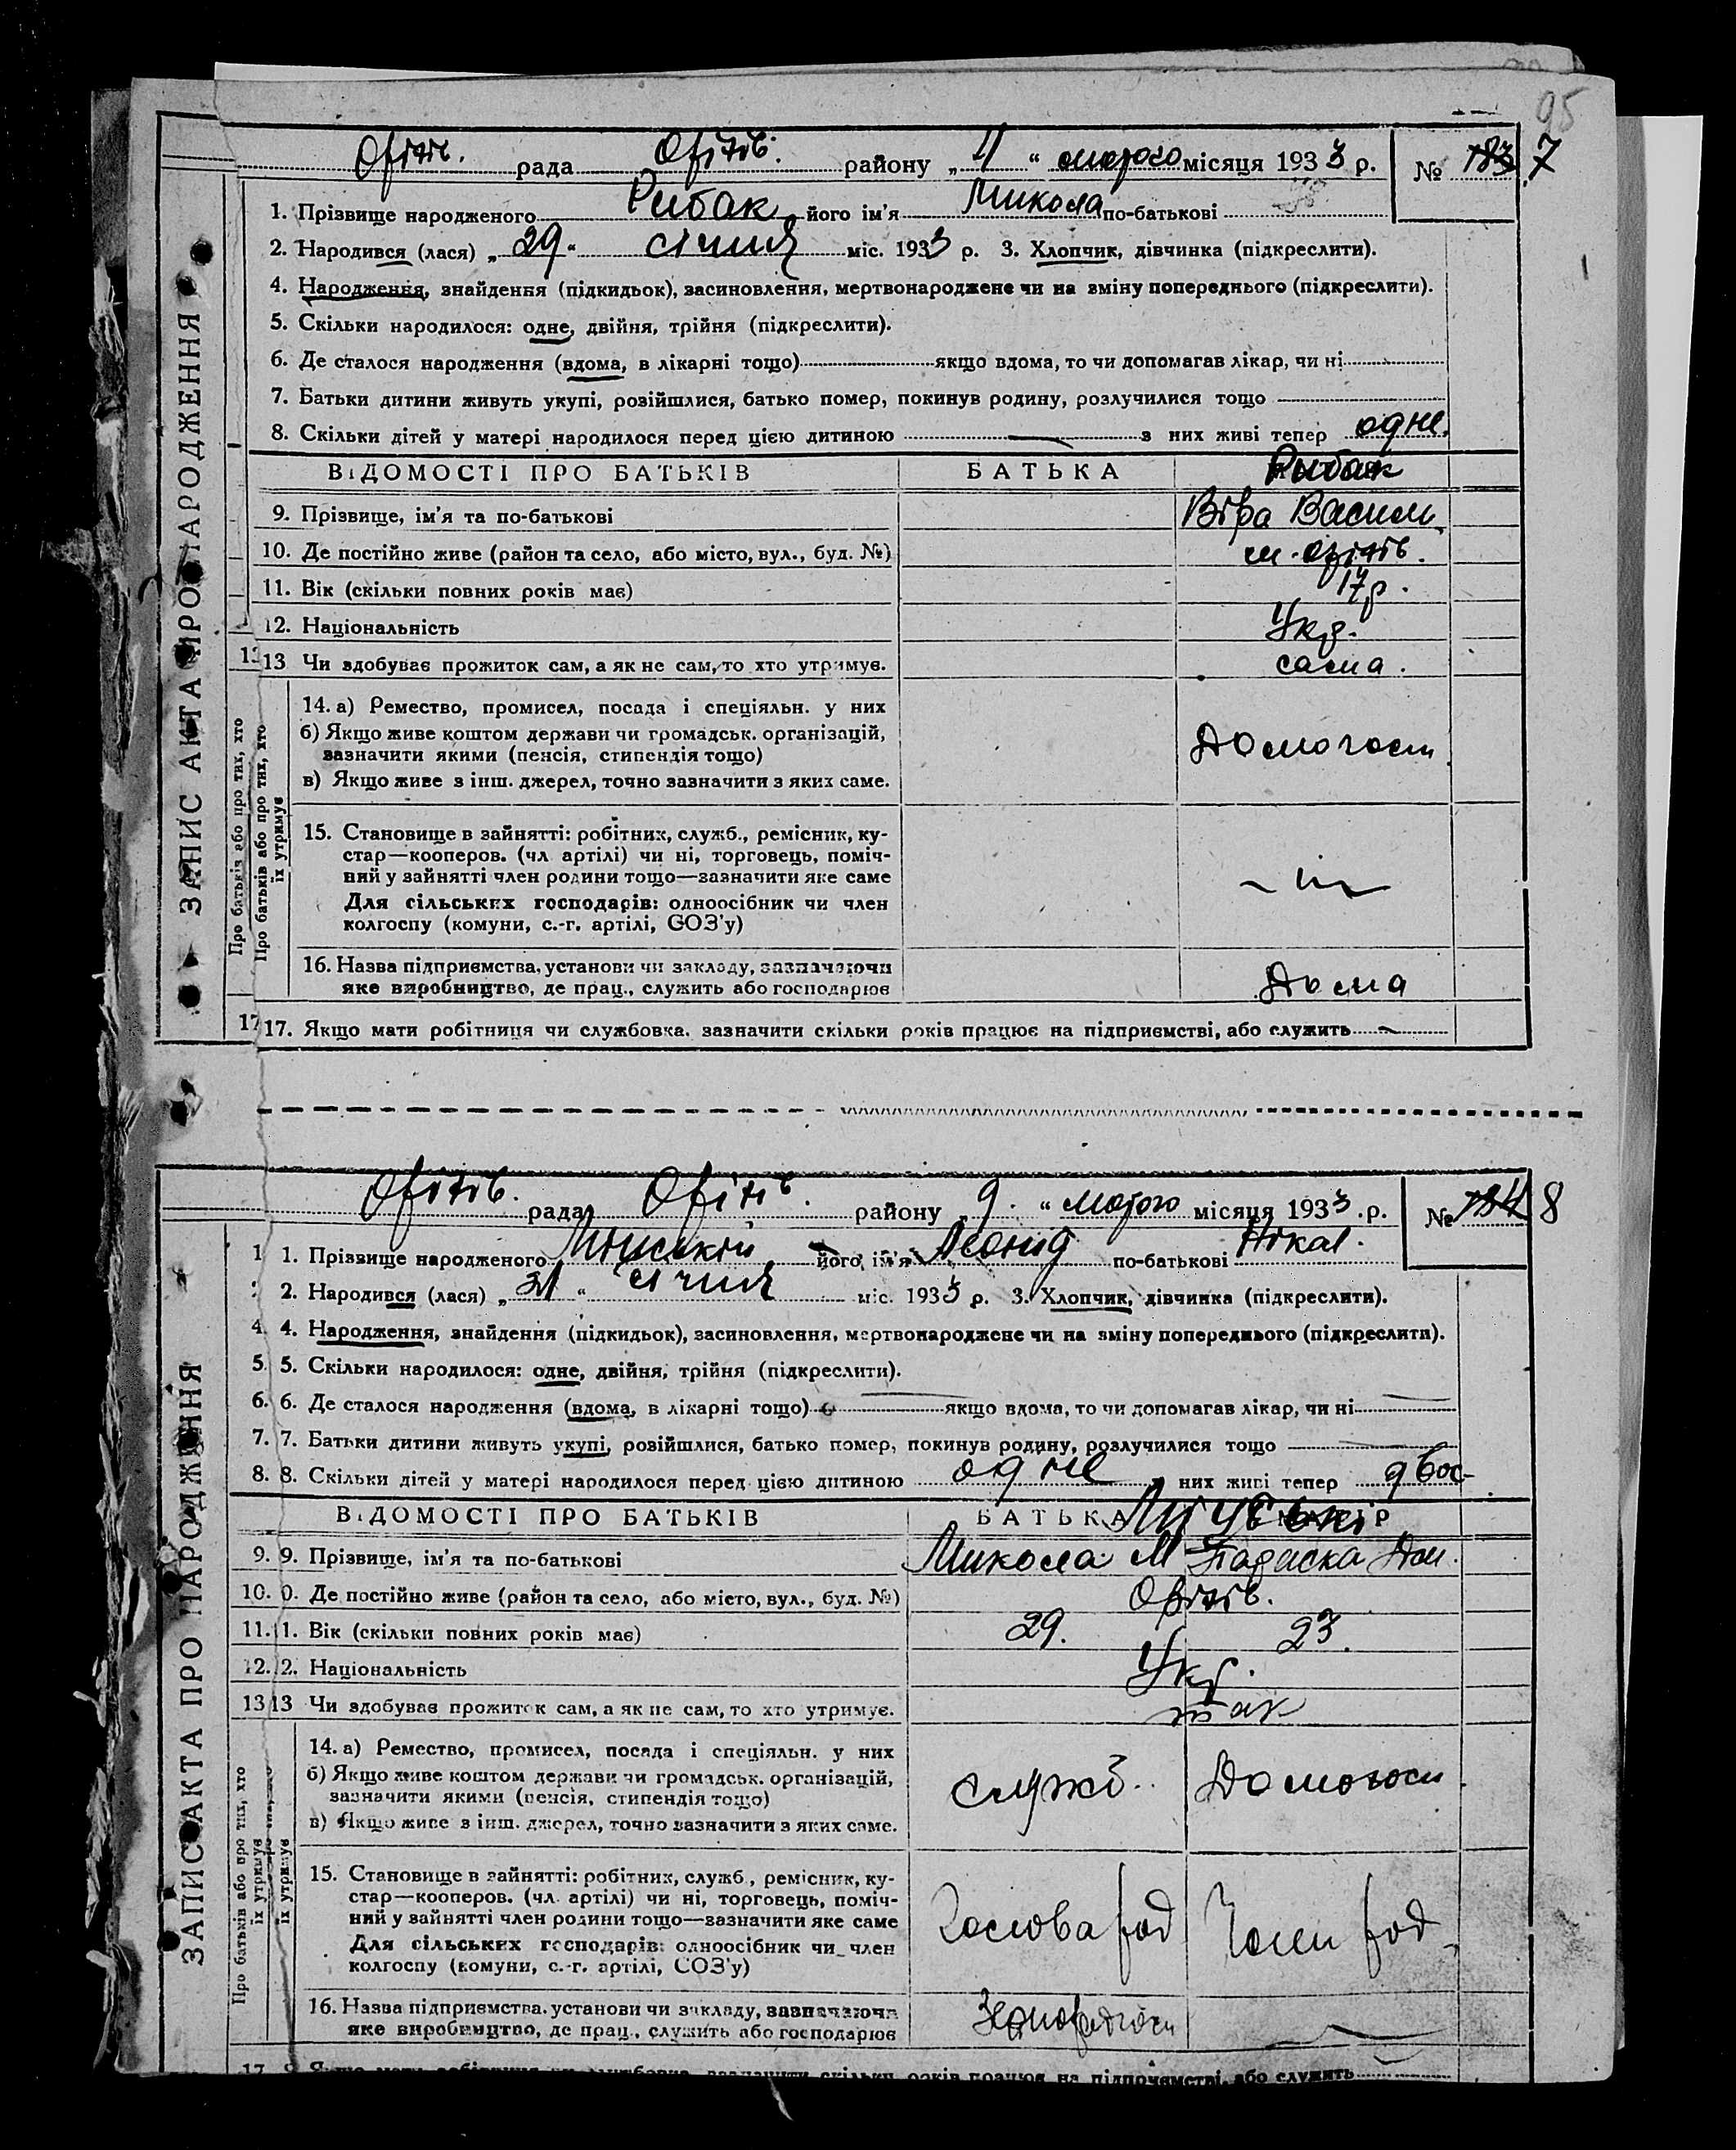 95
Оратів. рада Оратів. району „ 4 “ лютого місяця 1933 р. № 183 7
1. Прізвище народженого Рибак його ім’я Микола по-батькові
2. Народився (лася) „ 29 “ січня міс. 1933 р. 3. Хлопчик, дівчинка (підкреслити).
4. Народження, знайдення (підкидьок), засиновлення, мертвонароджене чи на зміну попереднього (підкреслити).
5. Скільки народилося: одне, двійня, трійня (підкреслити).
6. Де сталося народження (вдома, в лікарні тощо) якщо вдома, то чи допомагав лікар, чи ні
7. Батьки дитини живуть укупі, розійшлися, батько помер, покинув родину, розлучилися тощо
8. Скільки дітей у матері народилося перед цією дитиною — з них живі тепер одне.
ВІДОМОСТІ ПРО БАТЬКІВ БАТЬКА Рибак
9. Прізвище, ім’я та по-батькові Віра Васил.
10. Де постійно живе (район та село, або місто, вул., буд. №) м. Оратів.
11. Вік (скільки повних років має) 17 р.
12. Національність Укр.
13 13 Чи здобуває прожиток сам, а як не сам, то хто утримує. сама.
14. а) Ремество, промисел, посада і спеціяльн. у них
б) Якщо живе коштом держави чи громадськ. організацій,
зазначити якими (пенсія, стипендія тощо) Домогосп.
в) Якщо живе з інш. джерел, точно зазначити з яких саме.
15. Становище в зайнятті: робітник, служб., ремісник, ку-
стар—кооперов. (чл артілі) чи ні, торговець, поміч-
ний у зайнятті член родини тощо—зазначити яке саме
Для сільських господарів: одноосібник чи член
колгоспу (комуни, с.-г. артілі, СОЗ’у)
16. Назва підприємства, установи чи закладу, зазначаючи
яке виробництво, де прац., служить або господарює Дома
17 17. Якщо мати робітниця чи службовка. зазначити скільки років працює на підприємстві, або служить —
ЗАПИС АКТА ПРО НАРОДЖЕННЯ
Про батьків або про тих, хто
Про батьків або про тих, хто
їх утримує
Оратів. рада Оратів. району „ 9. “ лютого місяця 1933 .р. № 184 8
1 1. Прізвище народженого його ім’я Леонід по-батькові Нікал.
2. Народився (лася) „ 31 “ січня міс. 1933 р. 3. Хлопчик, дівчинка (підкреслити).
4. 4. Народження, знайдення (підкидьок), засиновлення, мертвонароджене чи на зміну попереднього (підкреслити).
5. 5. Скільки народилося: одне, двійня, трійня (підкреслити).
6. 6. Де сталося народження (вдома, в лікарні тощо) якщо вдома, то чи допомагав лікар, чи ні
7. 7. Батьки дитини живуть укупі, розійшлися, батько помер, покинув родину, розлучилися тощо
8. 8. Скільки дітей у матері народилося перед цією дитиною одне з них живі тепер двоє
ВІДОМОСТІ ПРО БАТЬКІВ БАТЬКА
9. 9. Прізвище, ім’я та по-батькові Микола М Параска Дем.
10. 0. Де постійно живе (район та село, або місто, вул., буд. №) Оратів.
11. 1. Вік (скільки повних років має) 29. 23.
12. 2. Національність Укр.
13 13 Чи здобуває прожиток сам, а як не сам, то хто утримує. так
14. а) Ремество, промисел, посада і спеціяльн. у них
б) Якщо живе коштом держави чи громадськ. організацій,
зазначити якими (пенсія, стипендія тощо) служб. Домогосп.
в) Якщо живе з інш. джерел, точно зазначити з яких саме.
15. Становище в зайнятті: робітник, служб., ремісник, ку-
стар—кооперов. (чл. артілі) чи ні, торговець, поміч-
ний у зайнятті член родини тощо—зазначити яке саме Голова род Член род.
Для сільських господарів: одноосібник чи член
колгоспу (комуни, с.-г. артілі, СОЗ’у)
16. Назва підприємства. установи чи закладу, зазначаючи
яке виробництво, де прац., служить або господарює
17 Якщо мати робітниця чи службовка, зазначити скільки років працює на підприємстві, або служить
ЗАПИС АКТА ПРО НАРОДЖЕННЯ
Про батьків або про тих, хто
їх утримує
їх утримує